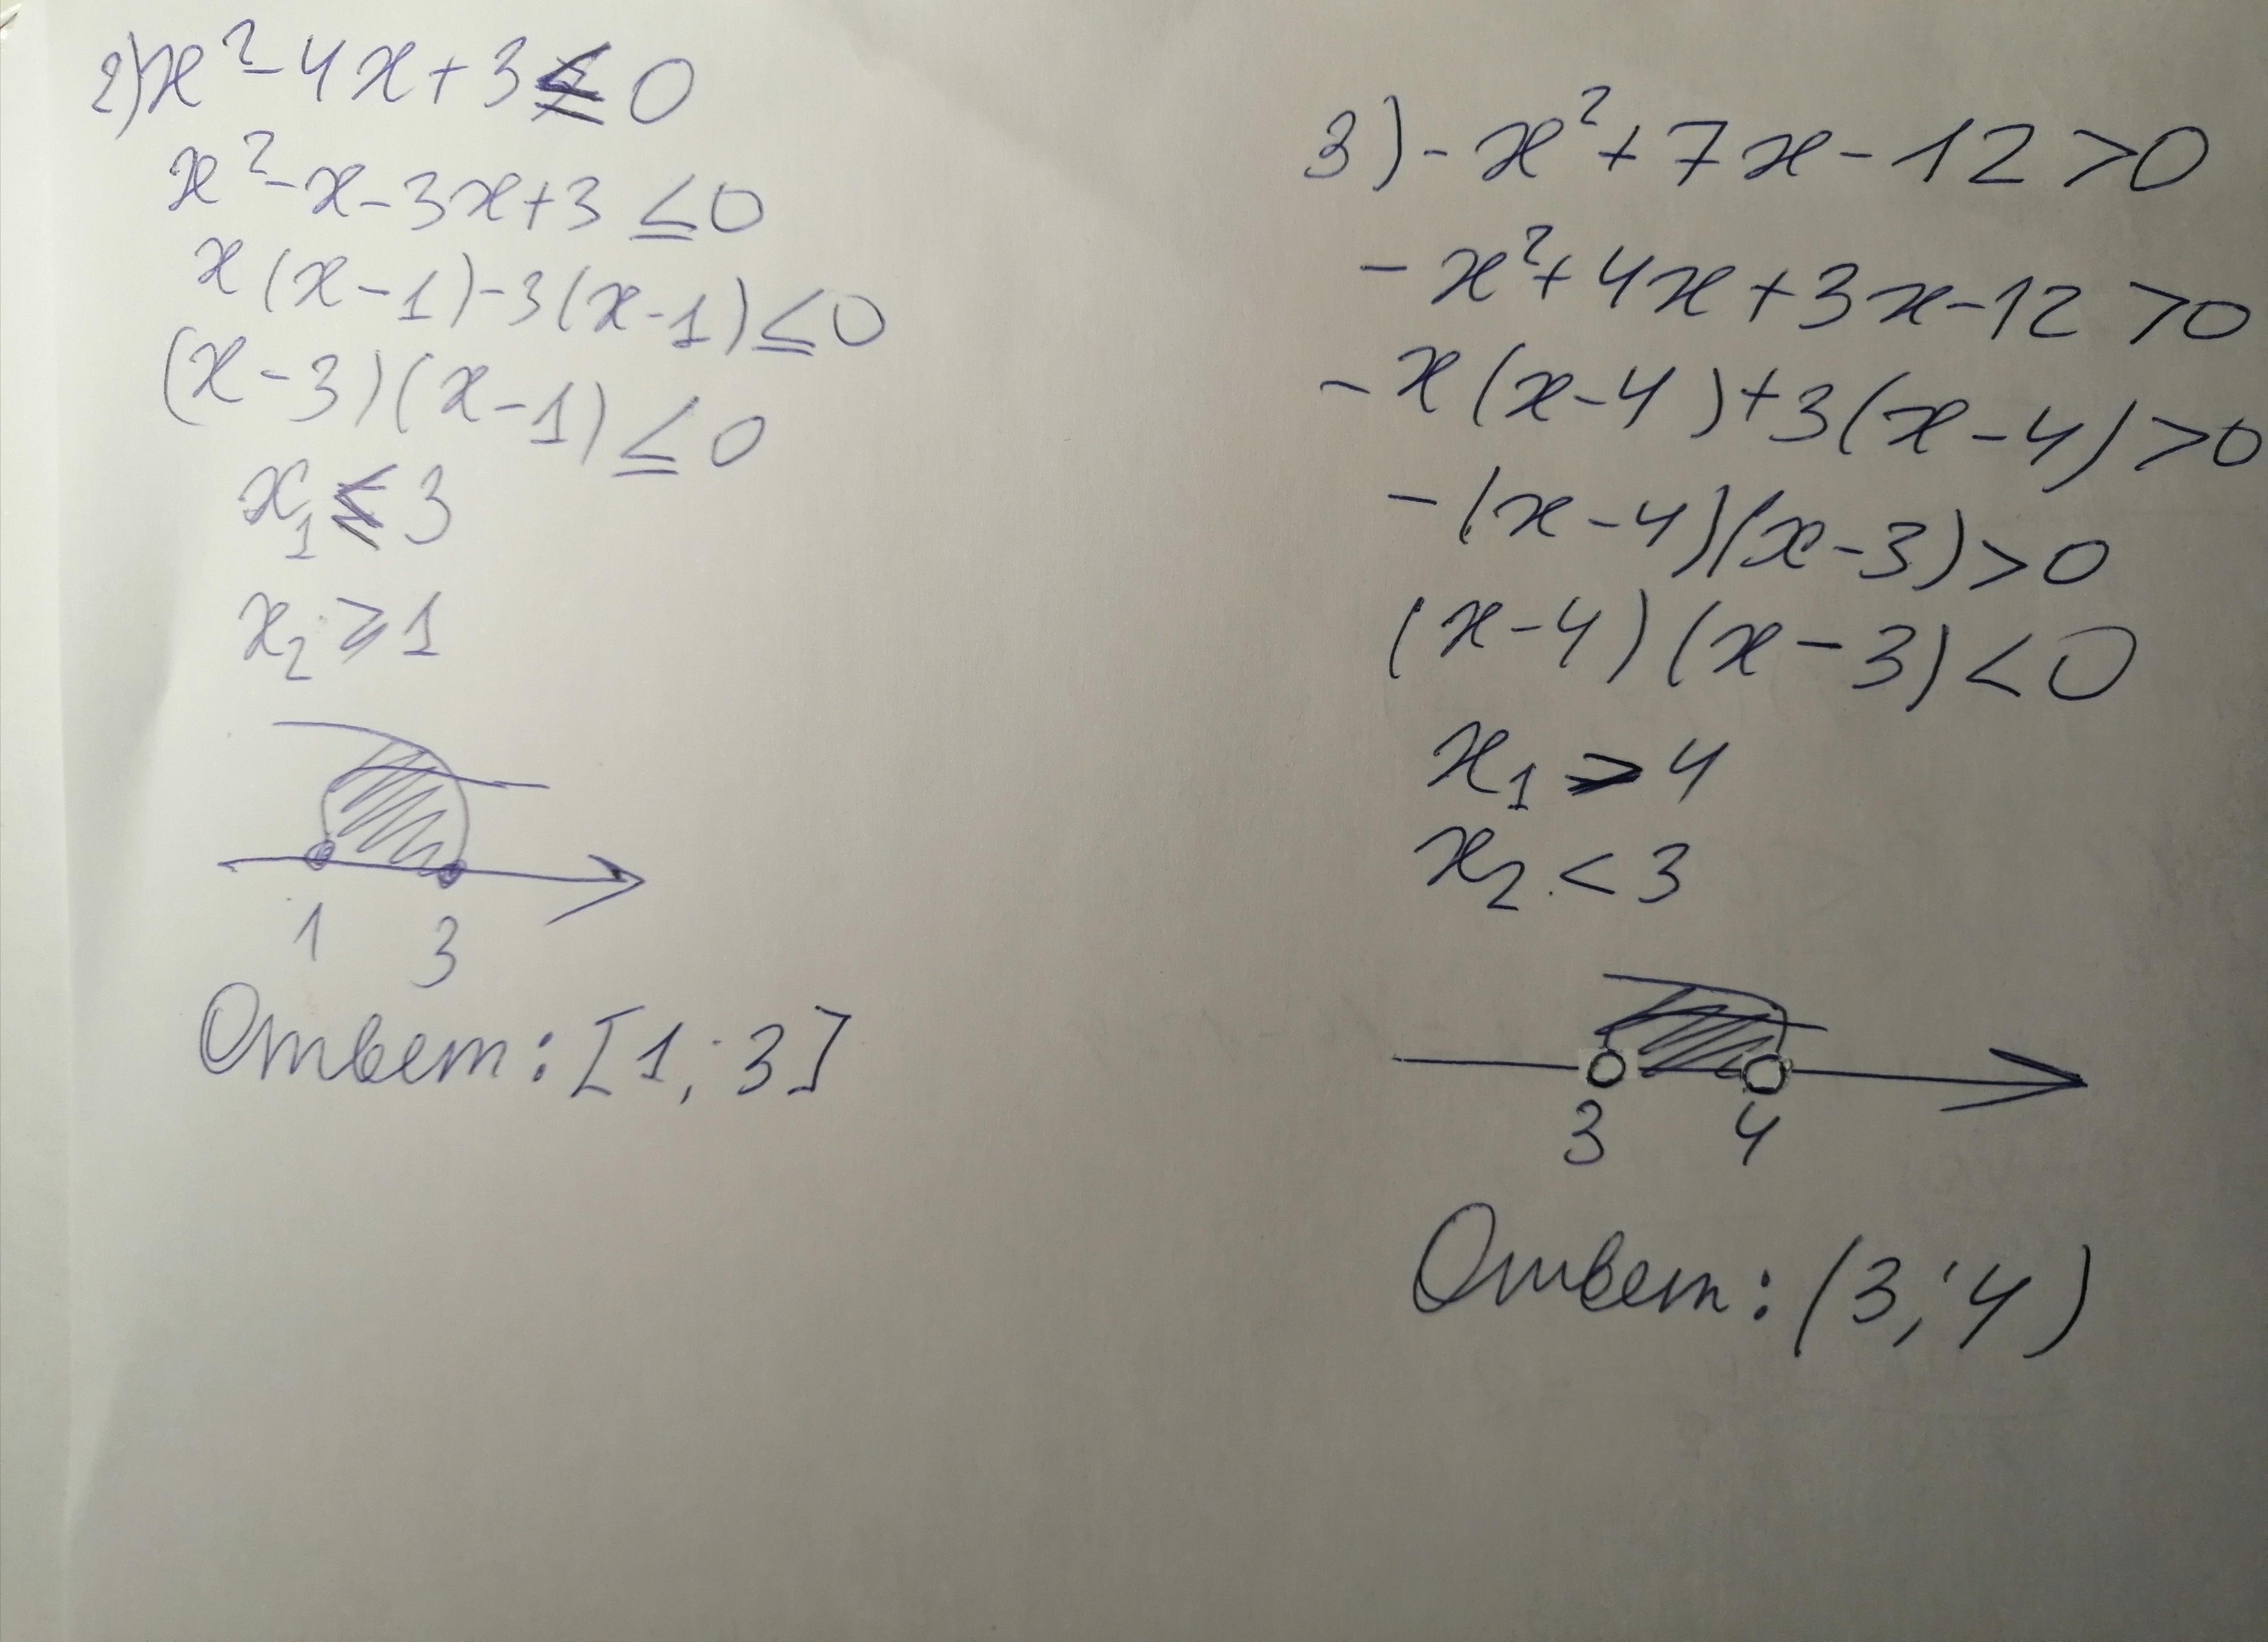 2) x² - 4x + 3 ≤ 0
x² - x - 3x + 3 ≤ 0
x(x - 1) - 3(x - 1) ≤ 0
(x - 3)(x - 1) ≤ 0
x₁ ≤ 3
x₂ ≥ 1
1 3
Ответ: [1; 3]
3) - x² + 7x - 12 > 0
- x² + 4x + 3x - 12 > 0
- x(x - 4) + 3(x - 4) > 0
- (x - 4)(x - 3) > 0
(x - 4)(x - 3) < 0
x₁ > 4
x₂ < 3
3 4
Ответ: (3; 4)